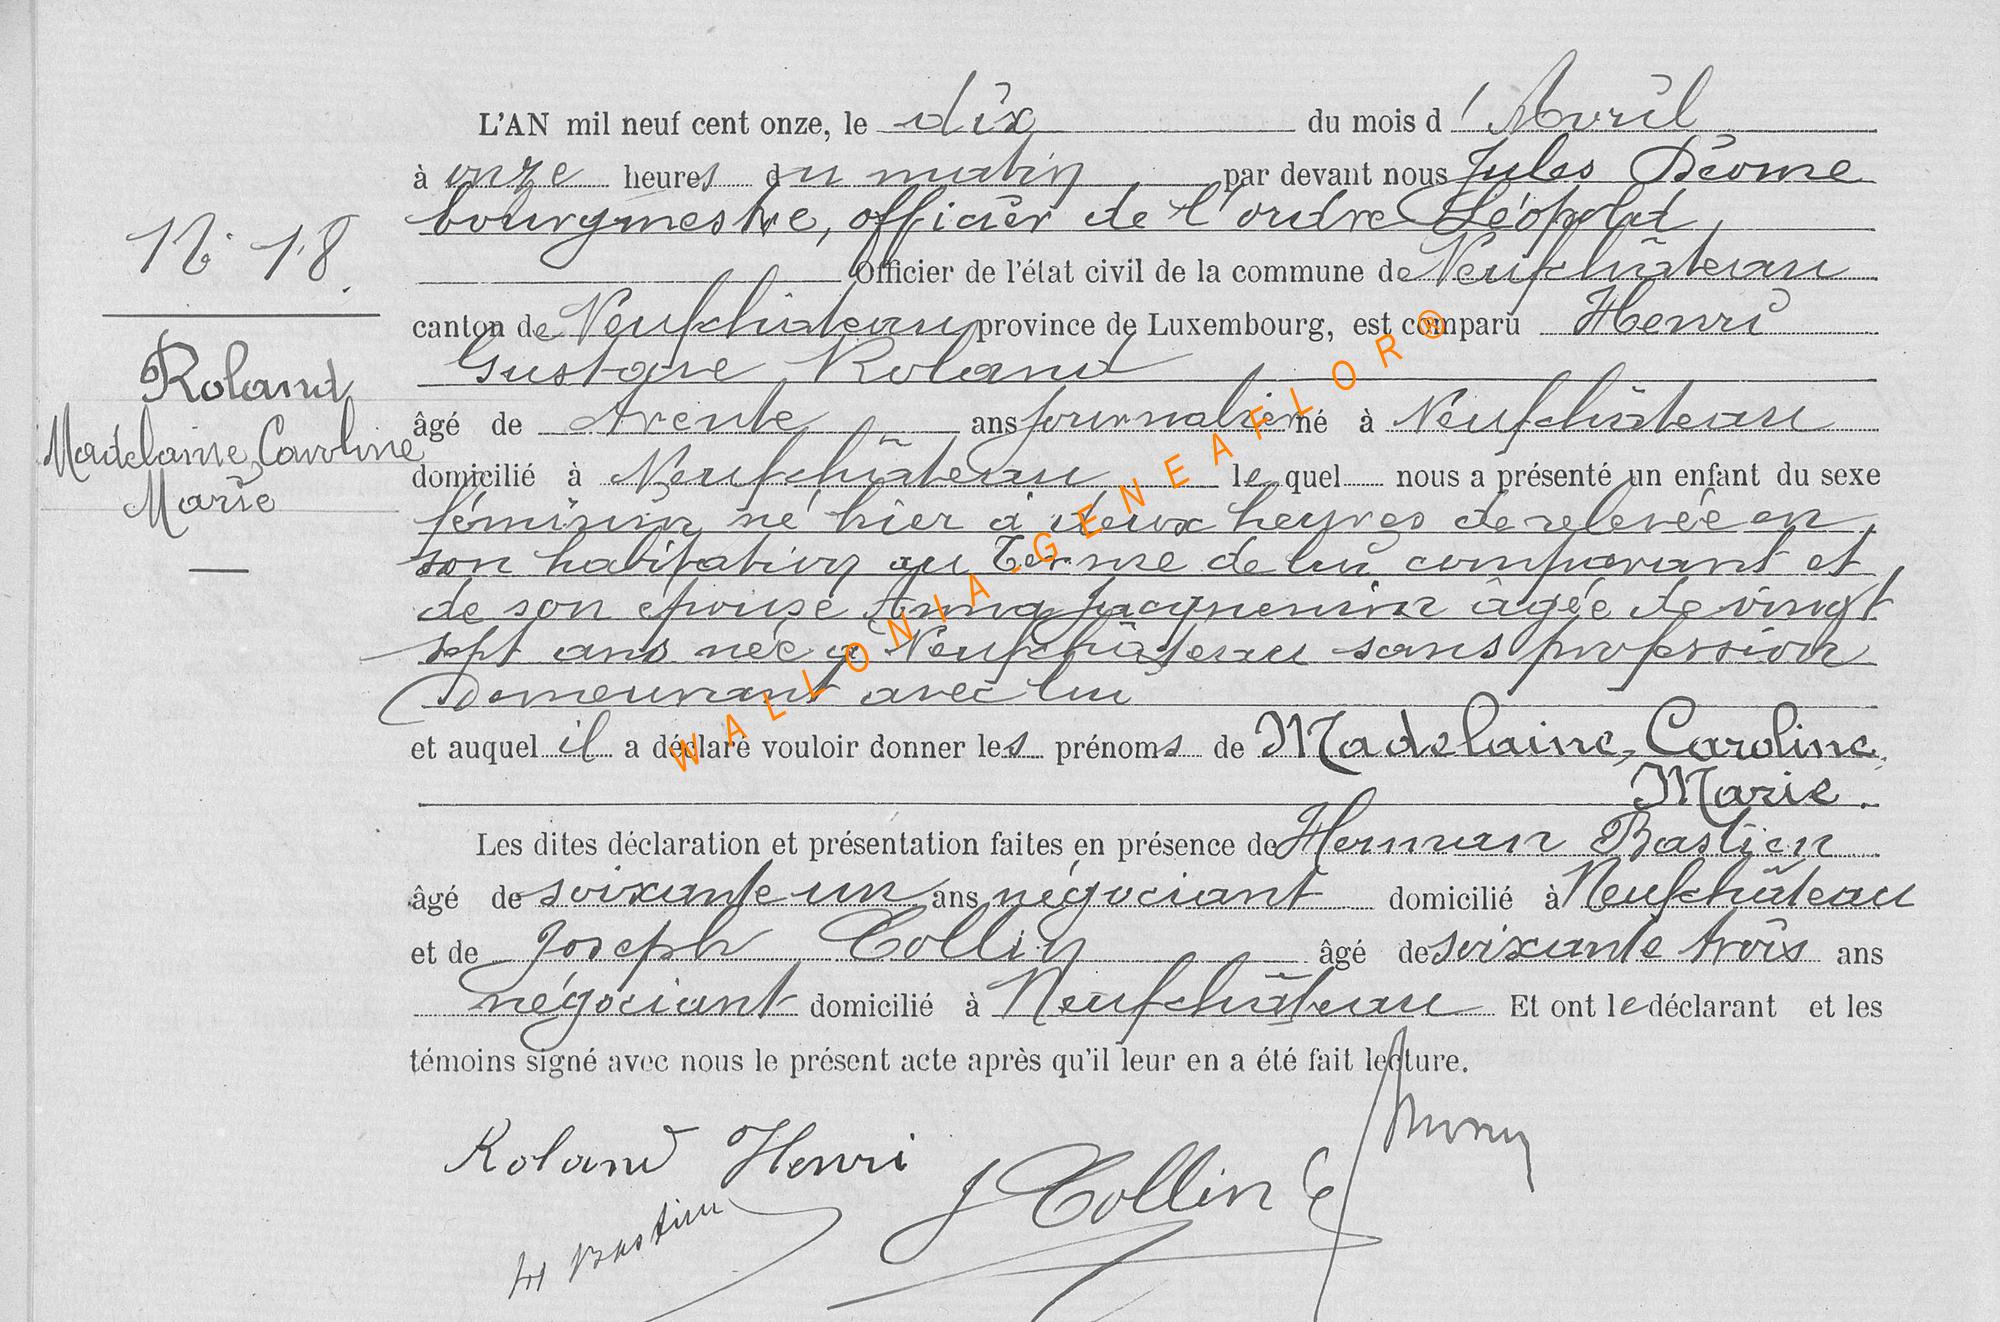 L'AN mil neuf cent onze, le dix du mois d'Avril
à onze heures du matin par devant nous Jules
bourgmestre, officier de l'ordre Léopold,
Officier de l'état civil de la commune de Neufchâteau
canton de Neufchâteau province de Luxembourg, est comparu Henri
Gustave Roland
âgé de trente ans journalier né à Neufchâteau
domicilié à Neufchâteau lequel nous a présenté un enfant du sexe
féminin né hier à deux heures de relevée en
son habitation au Terme de lui comparant et
de son épouse Anna Jacquemin âgée de vingt
sept ans née à Neufchâteau sans profession
demeurant avec lui
et auquel il a déclaré vouloir donner les prénoms de Madelaine, Caroline,
Marie.
Les dites déclaration et présentation faites en présence de Herman Bastien
âgé de soixante un ans négociant domicilié à Neufchâteau
et de Joseph Collin âgé de soixante trois ans
négociant domicilié à Neufchâteau Et ont le déclarant et les
témoins signé avec nous le présent acte après qu'il leur en a été fait lecture.
N° 18.
Roland
Madelaine, Caroline
Marie
Roland Henri
H Bastien
J Collin
WALLONIA-GENEAFLOR®